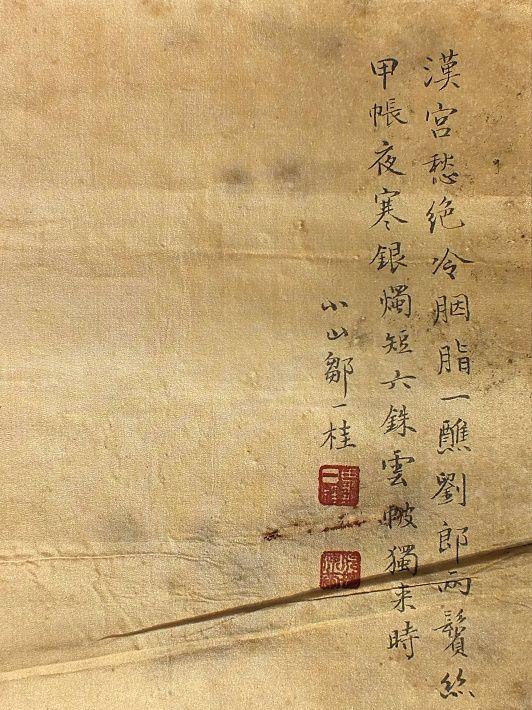 漢宮愁絶冷胭脂一醮劉郎両鬢絲
甲帳夜寒銀燭短六銖雲帔獨来時
小山鄒一桂